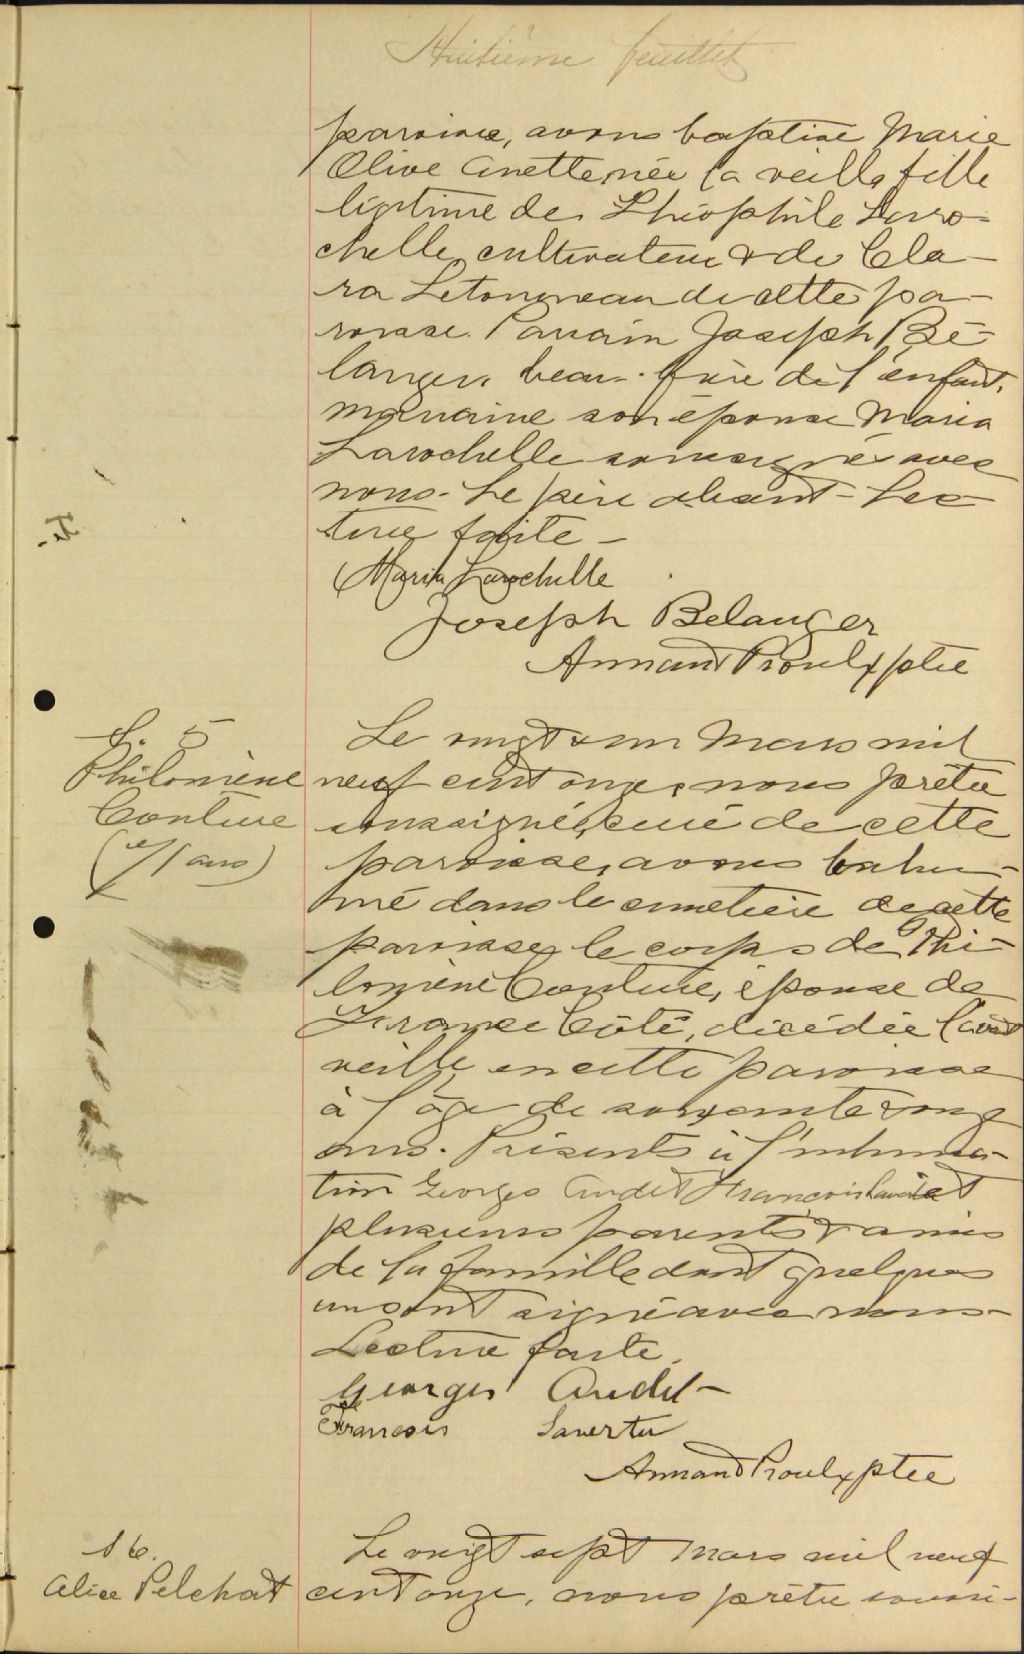 Huitième feuillet
paroisse, avons baptisé Marie
Olive Anette, née la veille fille
ligitime de Théophile Laro-
chelle, cultivateur & de Cla-
ra Letourneau de cette pa-
roisse. Parrain Joseph Bé-
langer, beau-frère de l'enfant,
marraine son épouse Maria
Larochelle soussignés avec
nous. Le père absent - Lec-
ture faite -
Maria Larochelle
Joseph Belanger
Armand Proulx ptre
S. 5
Philomène
Couture
(71 ans)
Le vingt & un Mars mil
neuf cent onze, nous prêtre
soussigné, curé de cette
paroisse, avons inhu-
mé dans le cimetière de cette
paroisse, le corps de Phi-
lomène Couture, épouse de
France Côté, décédée l'avant
veille en cette paroisse
à l'âge de soixante & onze
ans. Présents à l'inhuma-
tion Georges Audet François et
plusieurs parents & amis
de la famille dont quelques
uns ont signé avec nous -
Lecture faite.
Georges Audet -
François Lavertu
Armand Proulx ptre
16.
Alice Pelchat
Le vingt sept Mars mil neuf
cent onze, nous prêtre soussi-